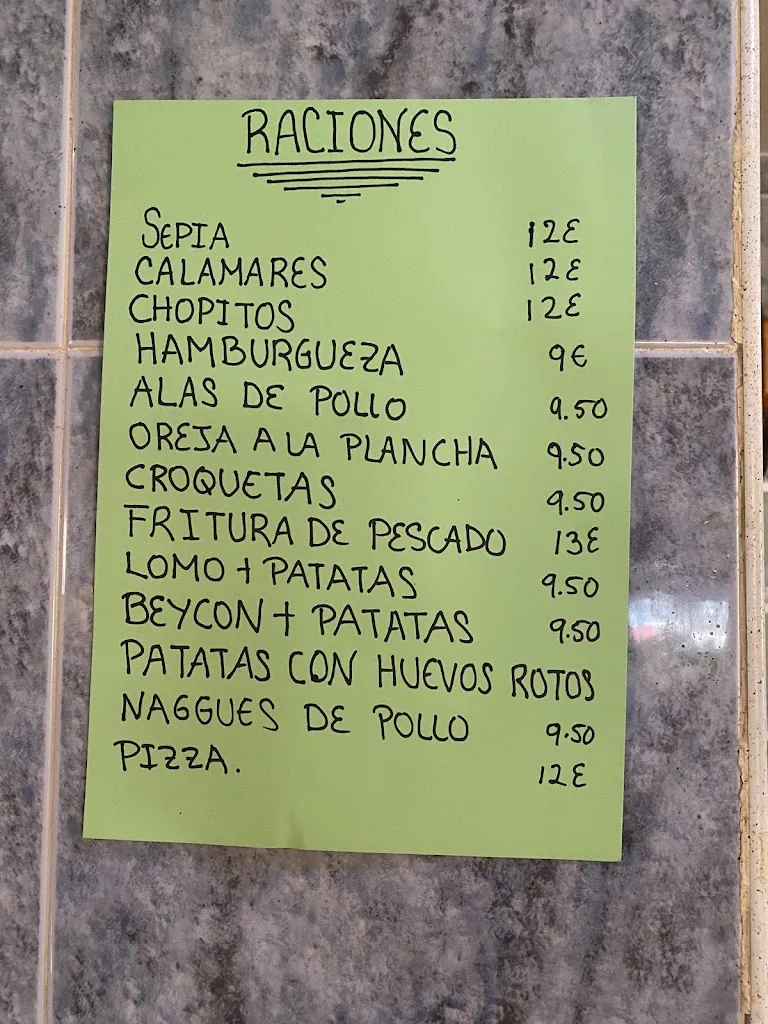 RACIONES
SEPIA 12€
CALAMARES 12€
CHOPITOS 12€
HAMBURGUEZA 9€
ALAS DE POLLO 9.50
OREJA A LA PLANCHA 9.50
CROQUETAS 9.50
FRITURA DE PESCADO 13€
LOMO + PATATAS 9.50
BEYCON + PATATAS 9.50
PATATAS CON HUEVOS ROTOS
NAGGUES DE POLLO 9.50
PIZZA. 12€